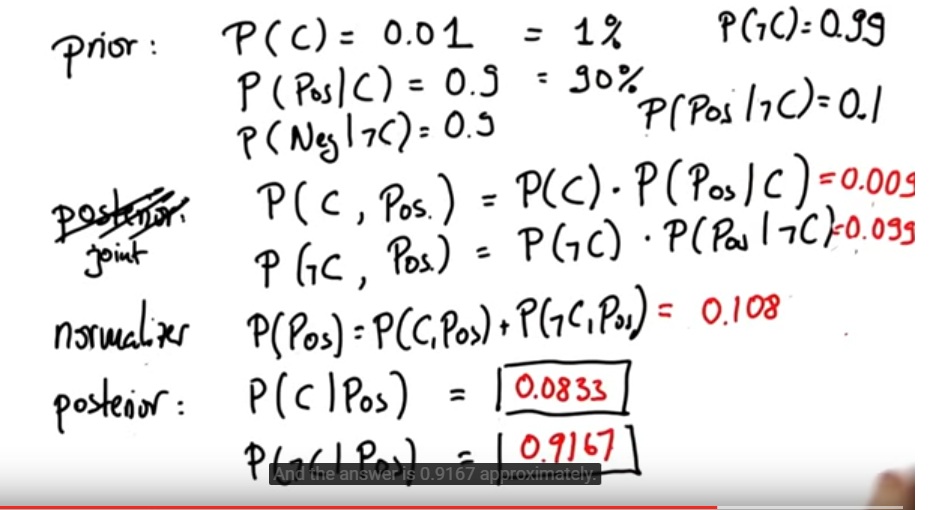 prior: P(C) = 0.01 = 1% P(¬C) = 0.99
P(Pos|C) = 0.9 = 90%
P(Pos|¬C) = 0.1
P(Neg|¬C) = 0.9
posterior: P(C, Pos.) = P(C) · P(Pos|C) = 0.009
joint P(¬C, Pos.) = P(¬C) · P(Pos|¬C) = 0.099
normalizer P(Pos) = P(C,Pos) + P(¬C,Pos) = 0.108
posterior: P(C|Pos) = 0.0833
P(¬C|Pos) = 0.9167
And the answer is 0.9167 approximately.